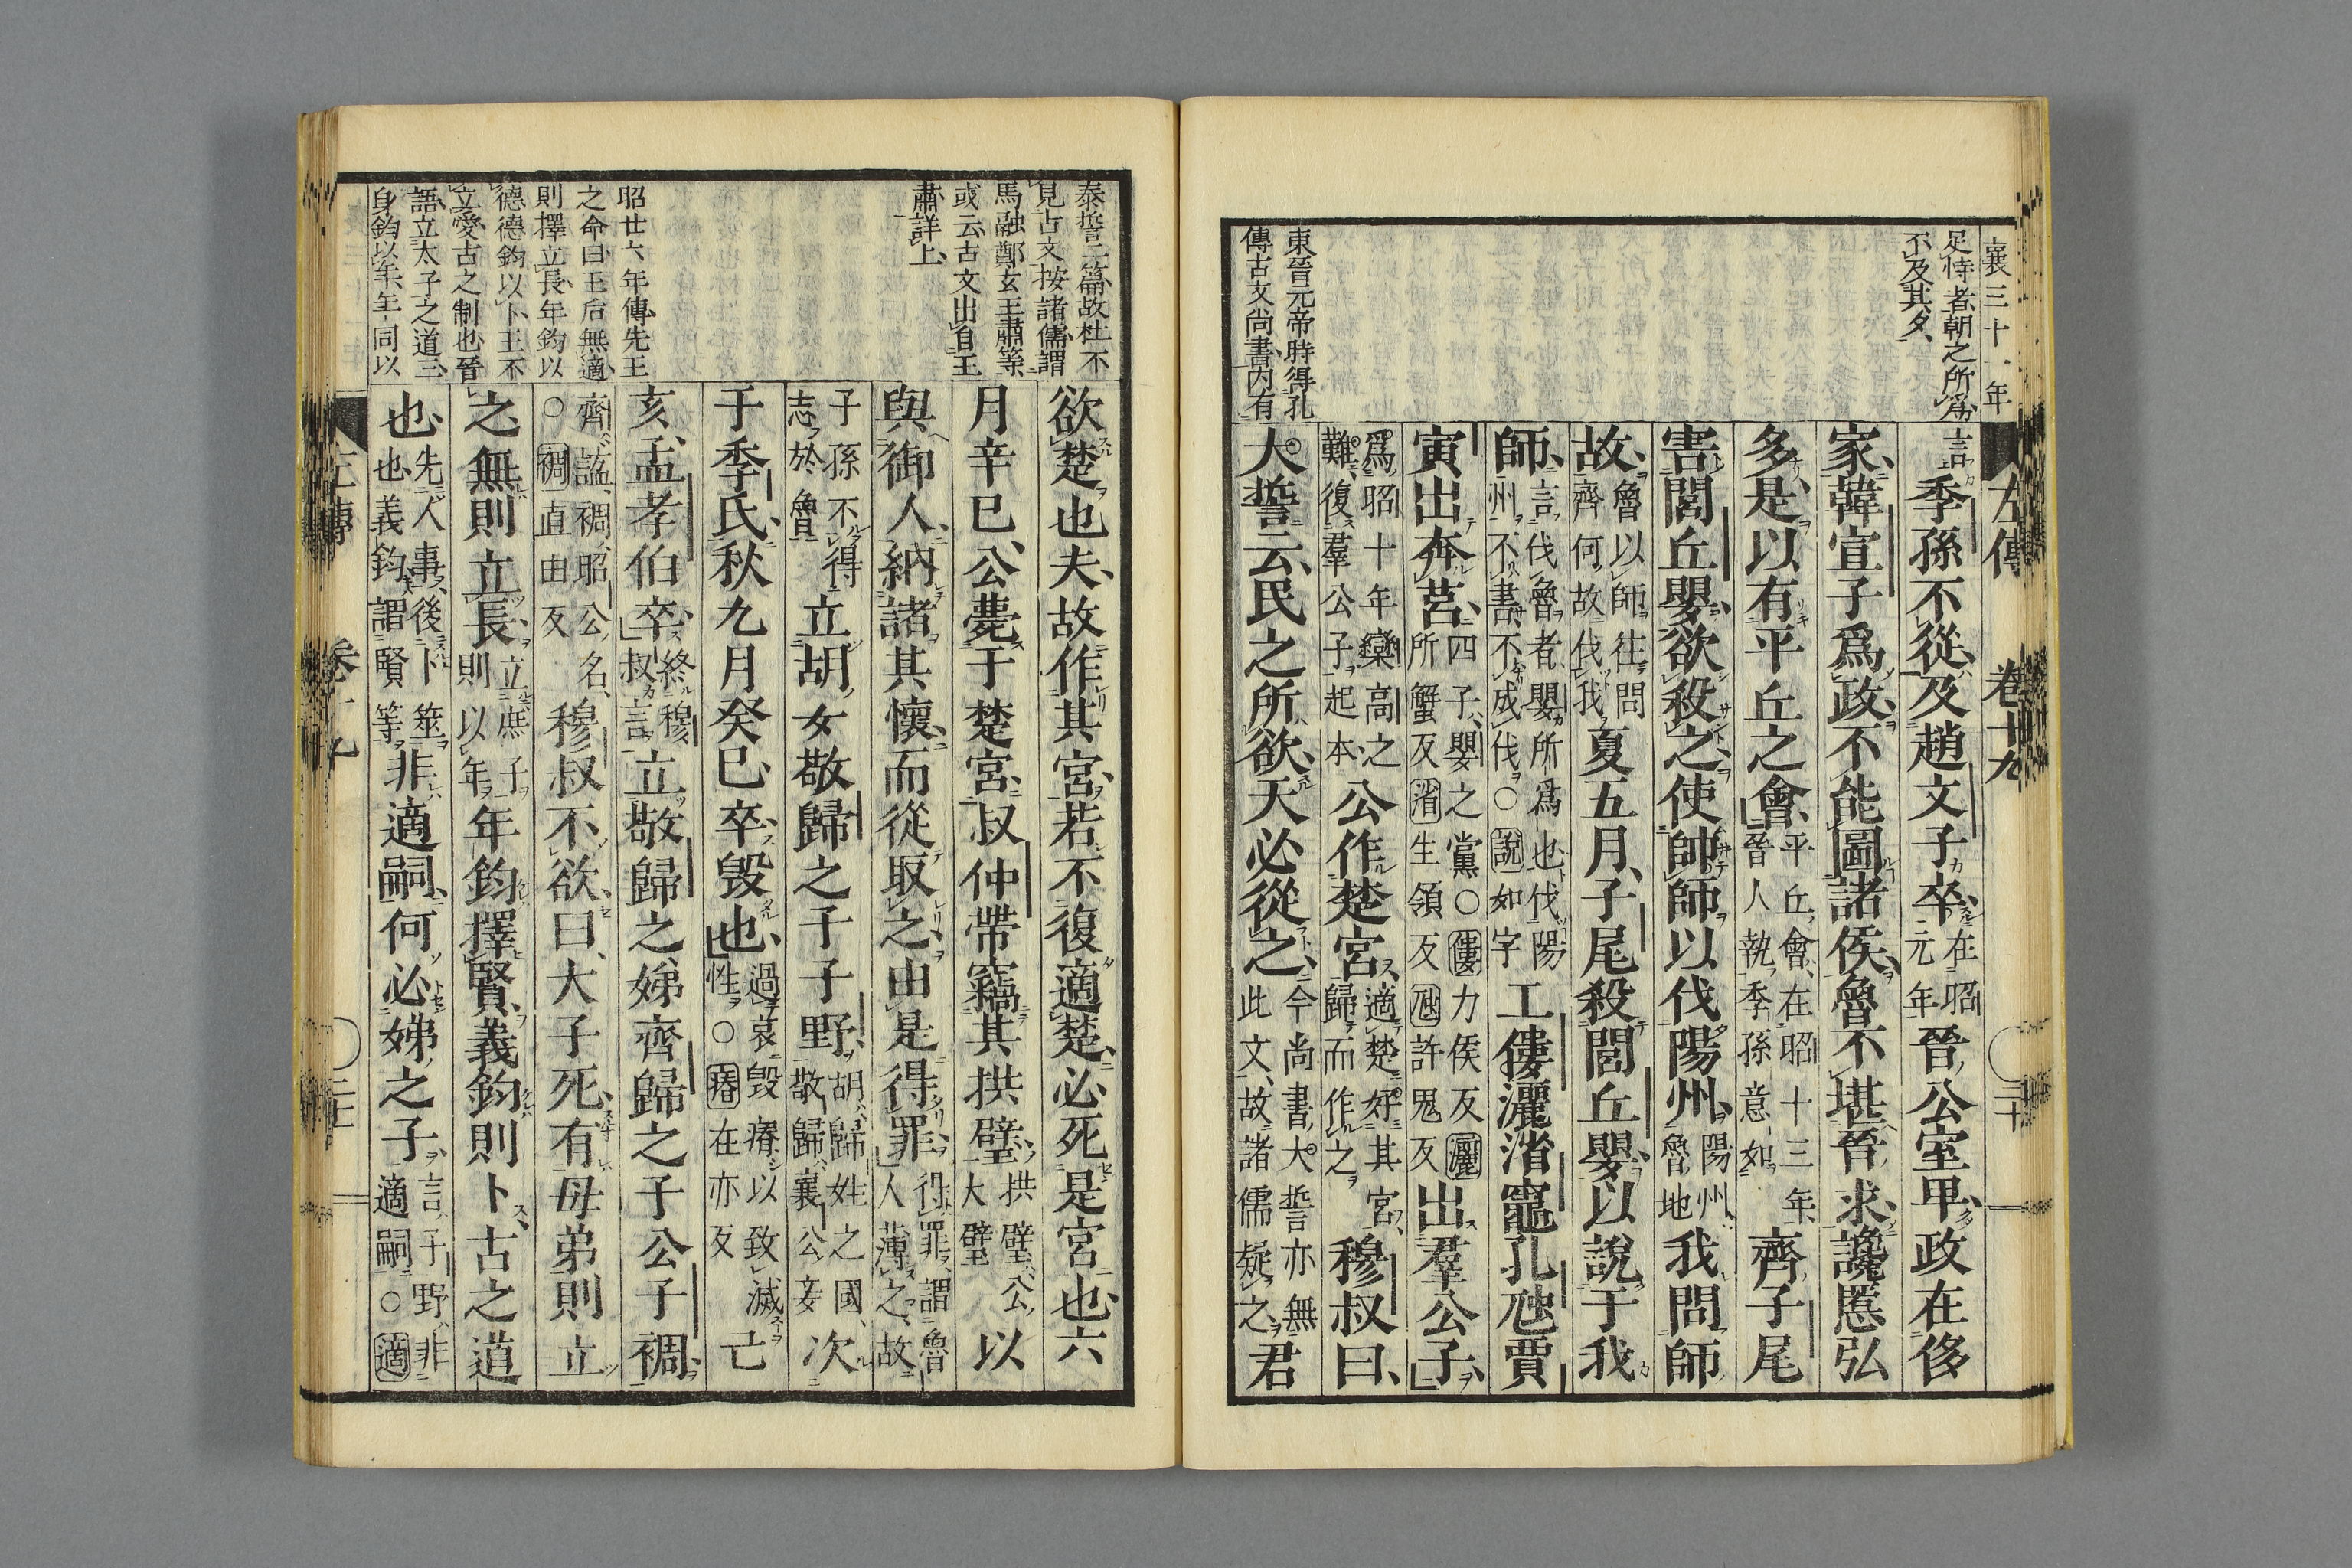 襄三十一年
左傳 卷十九 二十
足恃者朝之所爲
不及其夕
東晉元帝時得孔
傳古文尚書内有
言季孫不從及趙文子卒在昭元年晉公室卑政在侈
家韓宣子爲政不能圖諸侯魯不堪晉求讒慝弘
多是以有平丘之會平丘會在昭十三年晉人執季孫意如齊子尾
害閭丘嬰欲殺之使帥師以伐陽州陽州魯地我問師
故魯以師往問齊何故伐我夏五月子尾殺閭丘嬰以說于我
師言伐魯者嬰所爲也伐陽州不書不成伐○說如字工僂灑渻竈孔虺賈
寅出奔莒四子嬰之黨○僂力侯反灑所蟹反渻生領反虺許鬼反出羣公子
爲昭十年欒高之難復羣公子起本公作楚宮適楚好其宮歸而作之穆叔曰
大誓云民之所欲天必從之今尚書大誓亦無此文故諸儒疑之君
泰誓二篇故杜不
見古文按諸儒謂
馬融鄭玄王肅等
或云古文出自王
肅詳上
昭廿六年傳先王
之命曰王后無適
則擇立長年鈞以
德德鈞以卜王不
立愛古之制也晉
語立太子之道三
身鈞以年年同以
欲楚也夫故作其宮若不復適楚必死是宮也六
月辛巳公薨于楚宮叔仲帶竊其拱璧拱璧公大璧以
與御人納諸其懷而從取之由是得罪得罪謂魯人薄之故
子孫不得志於魯立胡女敬歸之子子野胡歸姓之國敬歸襄公妾次
于季氏秋九月癸巳卒毀也過哀毀瘠以致滅性○瘠在亦反亡
亥孟孝伯卒終穆叔言立敬歸之娣齊歸之子公子裯
齊謚裯昭公名○裯直由反穆叔不欲曰大子死有母弟則立
之無則立長立庶子則以年年鈞擇賢義鈞則卜古之道
也先人事後卜筮也義鈞謂賢等非適嗣何必娣之子言子野非適嗣○適
左傳 卷十九 二十一